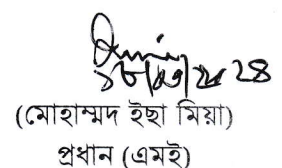 (মোহাম্মদ ইছা মিয়া)
প্রধান (এমই)